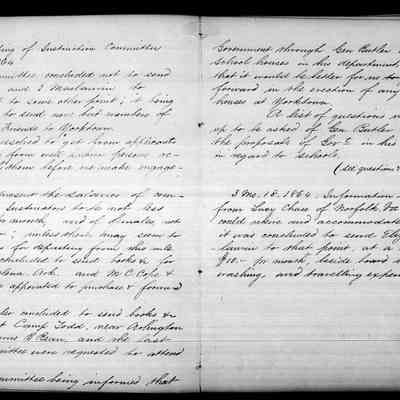 ing of Instruction Committee
64
mmittee concluded not to send
and I Maslamin to
to some other point; it being
to send now but members of
Friends to Yorktown.
resolved to get from applicants
from well known Persons re-
them before we make engage-
present the salaries of com-
Instructors to be not less
month, and of females, not
; unless there may seem to
for departing from this rule
concluded to send books &c for
Helena Ark. and M. C. Cope &
appointed to purchase & forward
also concluded to send books &c
Camp Todd, near Arlington
H Bean, and the last
mittee were requested to attend
Committee being informed that
Government through Gen Butler
school houses in this department,
that it would be better for us to
forward in the erection of any
houses at Yorktown.
A list of questions
up to be asked of Gen Butler
the proposals of Gov't in his
in regard to schools
(see questions
3 Mo. 18. 1864 - Information
from Lucy Chase of Norfolk Va
could room and accommodate
it was concluded to send
to that point, at a
$10.- pr month, beside board
washing, and travelling expen